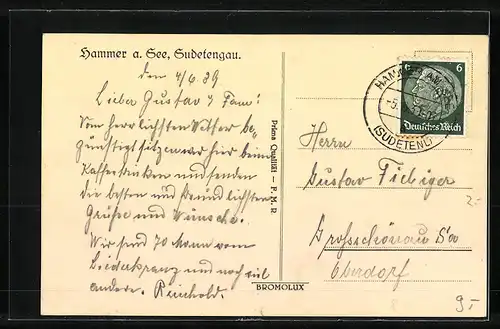 Hammer a. See, Sudetengau.
den 4/6.39
Lieber Gustav u Fam:
Vom herrlichsten Wetter be-
günstigt sitzen wir hier beim
Kaffeetrinken und senden
die besten und freundlichsten
Grüße und Wünsche.
Wir sind 70 Mann vom
Liederkranz und noch viel
andere. Reinhold.
Prima Qualität — P. M. R
BROMOLUX
6
Deutsches Reich
HAMMER AM
-5.
(SUDETENL)
Herrn
Gustav Fiebiger
Grosschönau Sa
Oberdorf
2.-
9.-